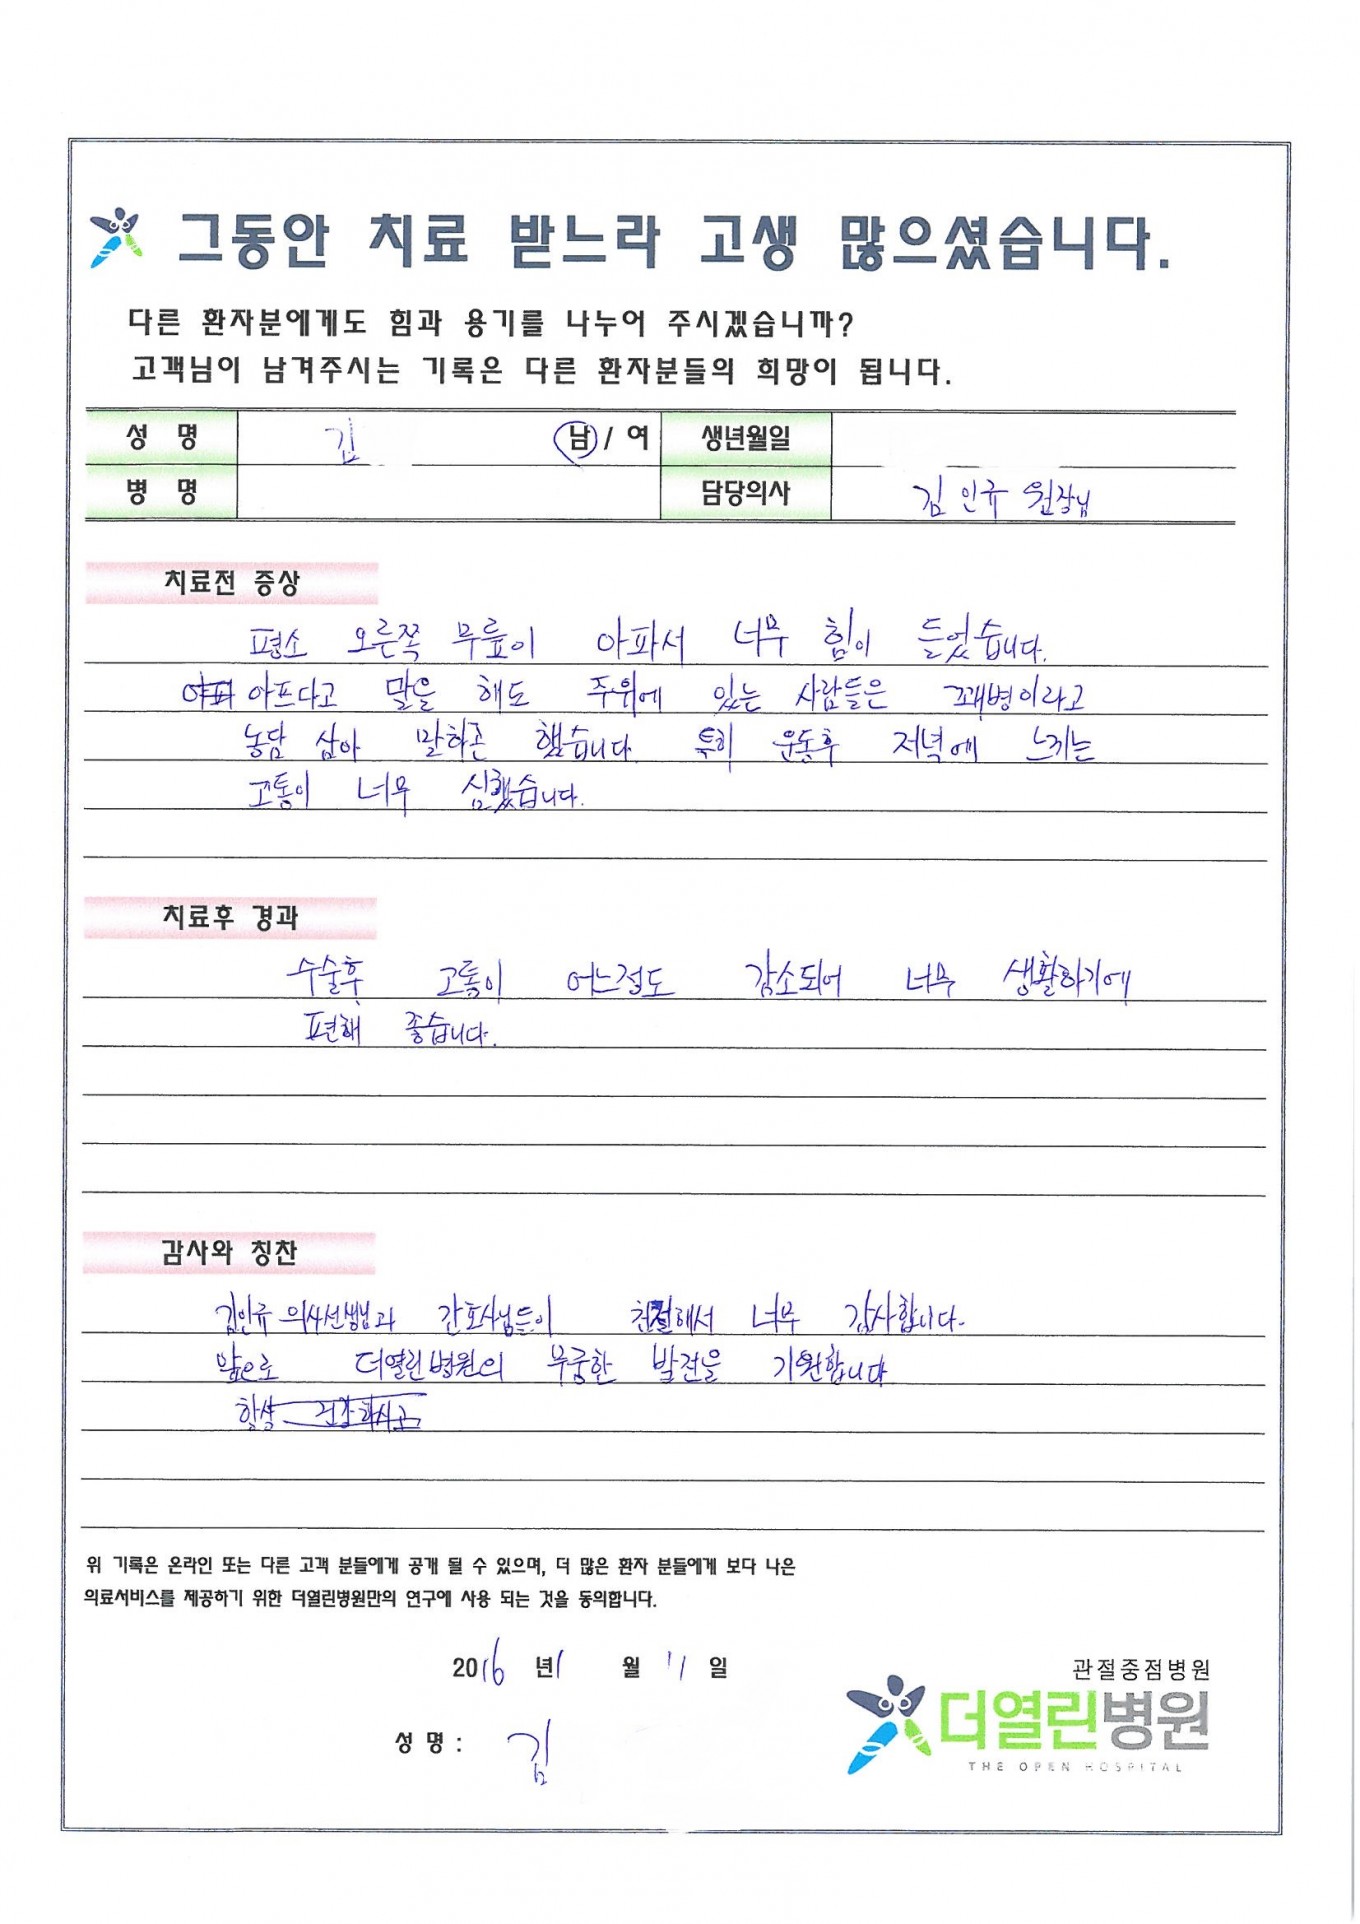 그동안 치료 받느라 고생 많으셨습니다.
다른 환자분에게도 힘과 용기를 나누어 주시겠습니까?
고객님이 남겨주시는 기록은 다른 환자분들의 희망이 됩니다.
성 명 김 남 / 여 생년월일
병 명 담당의사 김인규 원장님
치료전 증상
평소 오른쪽 무릎이 아파서 너무 힘이 들었습니다.
아프다고 말을 해도 주위에 있는 사람들은 꾀병이라고
농담 삼아 말하곤 했습니다. 특히 운동후 저녁에 느끼는
고통이 너무 심했습니다.
치료후 경과
수술후 고통이 어느정도 감소되어 너무 생활하기에
편해 좋습니다.
감사와 칭찬
김인규 의사선생님과 간호사님들이 친절해서 너무 감사합니다.
앞으로 더열린병원의 무궁한 발전을 기원합니다
항상 건강하시고
위 기록은 온라인 또는 다른 고객 분들에게 공개 될 수 있으며, 더 많은 환자 분들에게 보다 나은
의료서비스를 제공하기 위한 더열린병원만의 연구에 사용 되는 것을 동의합니다.
2016 년 1 월 11 일
성 명 : 김
관절중점병원
더열린병원
THE OPEN HOSPITAL